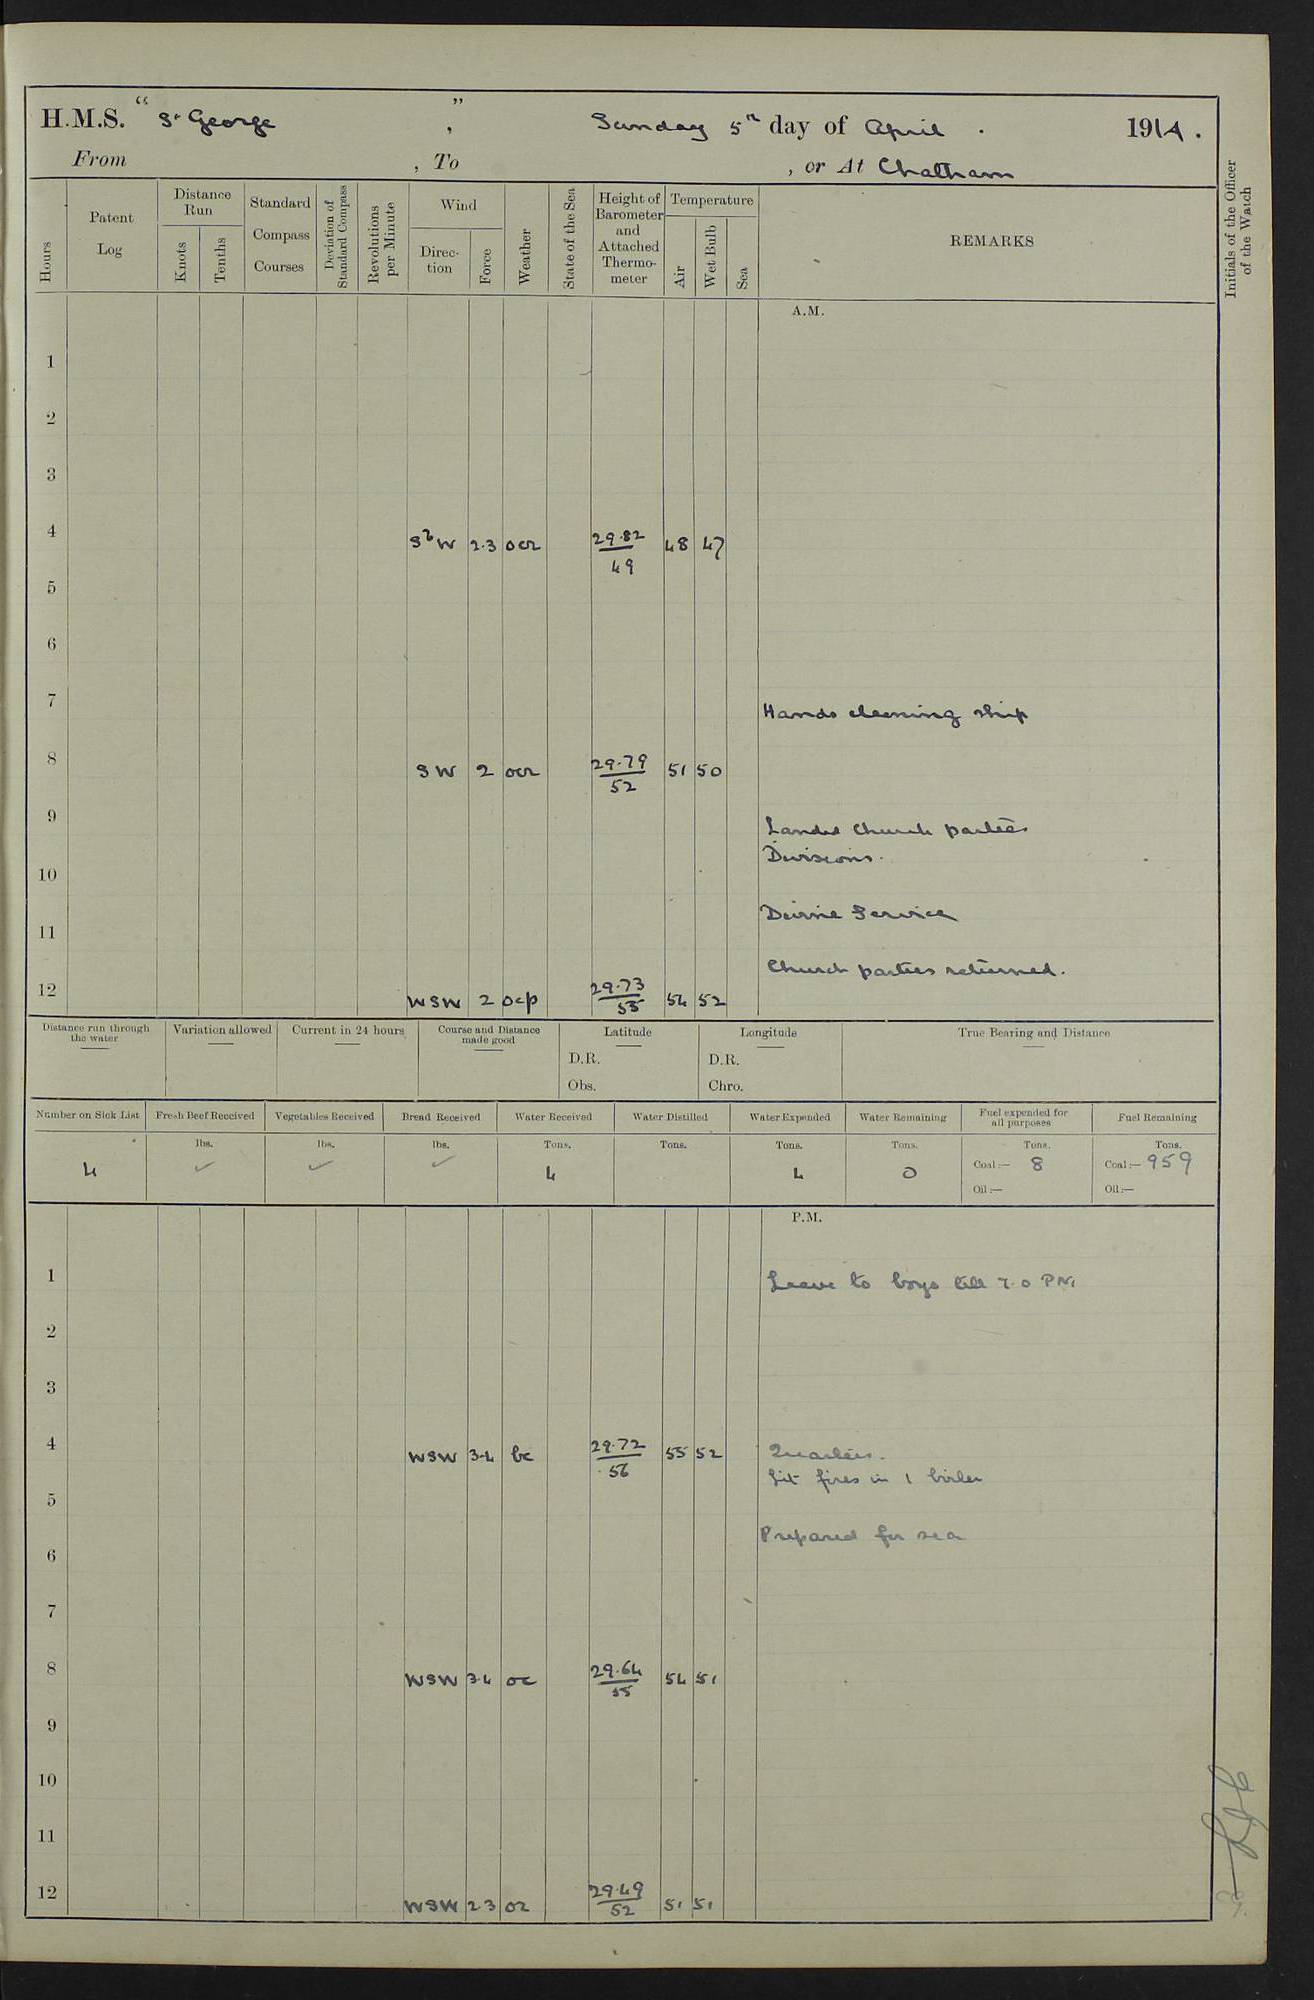 H.M.S. "St George", Sunday 5th day of April . 1914.
From , To , or At Chatham
Hours
Patent Log
Distance Run
Knots Tenths
Standard Compass Courses
Deviation of Standard Compass
Revolutions per Minute
Wind
Direction Force
Weather
State of the Sea
Height of Barometer and Attached Thermometer
Temperature
Air Wet Bulb Sea
REMARKS
Initials of the Officer of the Watch
A.M.
1
2
3
4 SbW 2.3 ocr 29.82 / 49 48 47
5
6
7 Hands cleaning ship
8 SW 2 ocr 29.79 / 52 51 50
9 Landed Church parties
Divisions.
10
Divine Service
11
Church parties returned.
12 WSW 2 ocp 29.73 / 55 54 52
Distance run through the water
Variation allowed
Current in 24 hours
Course and Distance made good
Latitude
D.R.
Obs.
Longitude
D.R.
Chro.
True Bearing and Distance
Number on Sick List Fresh Beef Received Vegetables Received Bread Received Water Received Water Distilled Water Expended Water Remaining Fuel expended for all purposes Fuel Remaining
lbs. lbs. lbs. Tons. Tons. Tons. Tons. Tons. Tons.
4 ✓ ✓ ✓ 4 4 0 Coal:— 8 Coal:— 959
Oil:— Oil:—
P.M.
1 Leave to boys till 7.0 PM
2
3
4 WSW 3-4 bc 29.72 / 56 55 52 Quarters.
Lit fires in 1 boiler
5
Prepared for sea
6
7
8 WSW 3.4 oc 29.64 / 55 54 51
9
10
11
12 WSW 2 3 or 29.49 / 52 51 51